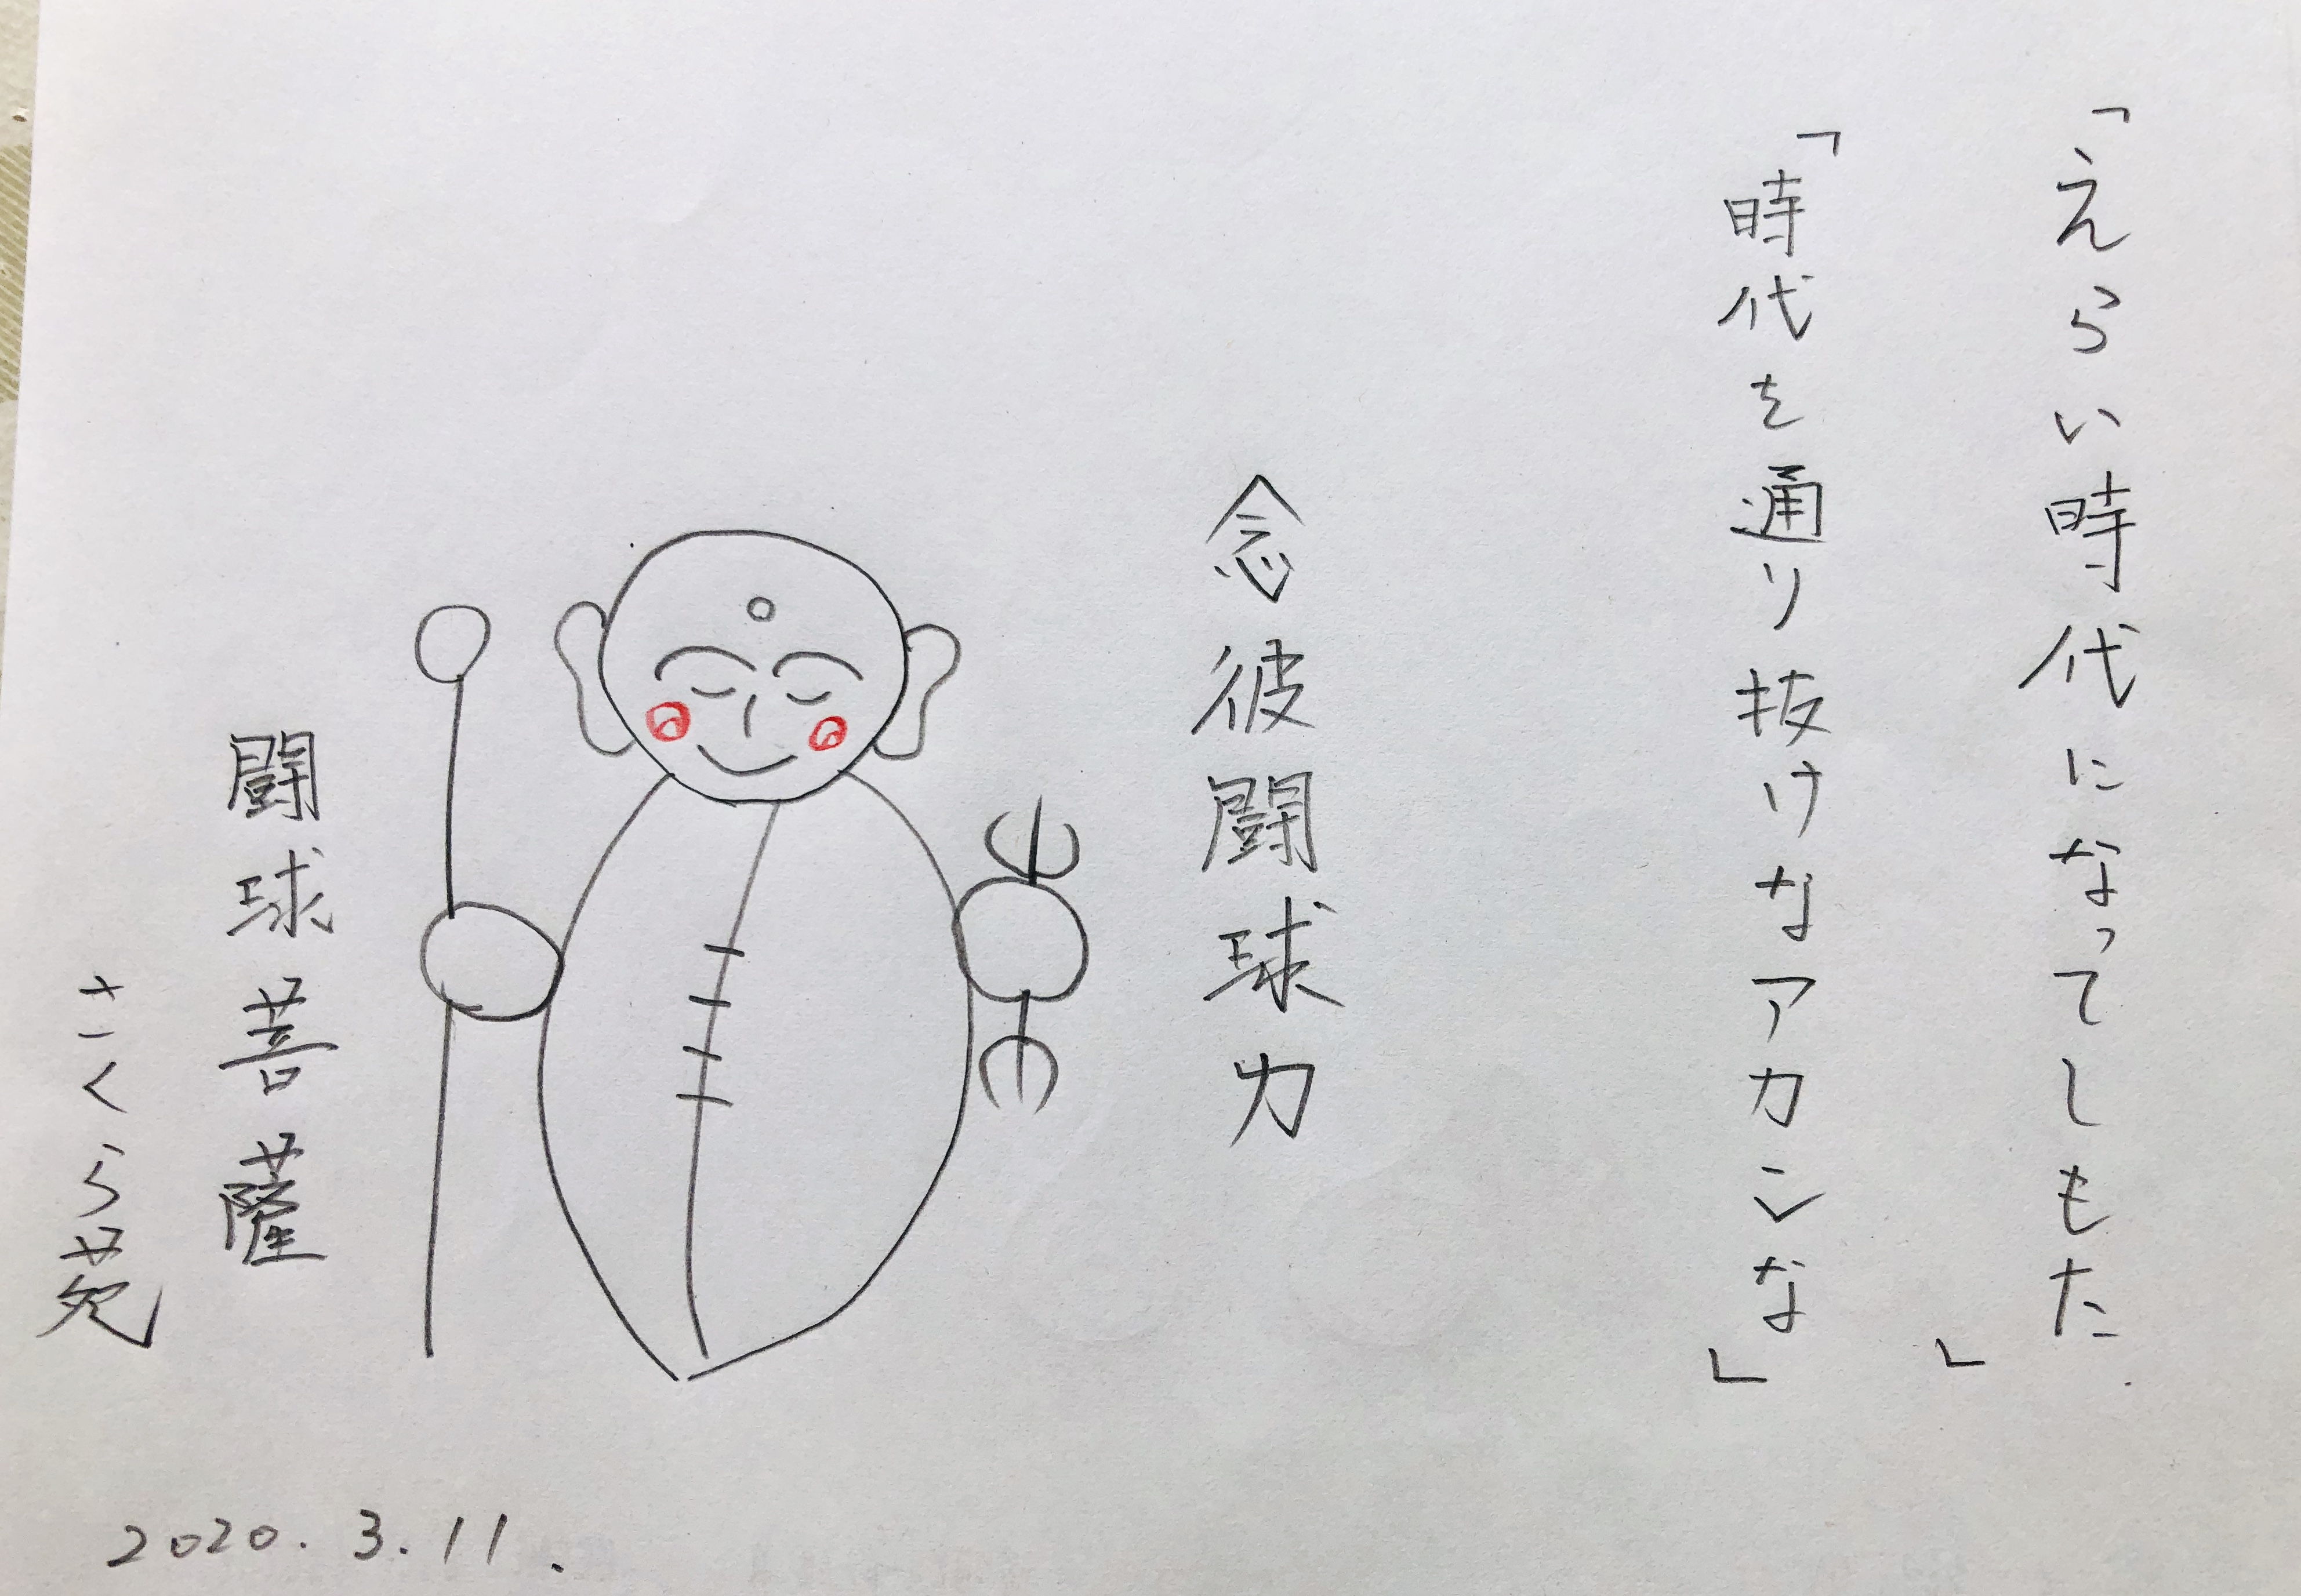 「えらい時代になってしもた」
「時代を通り抜けなアカンな」
念彼闘球力
闘球菩薩
さくら苑
2020.3.11.